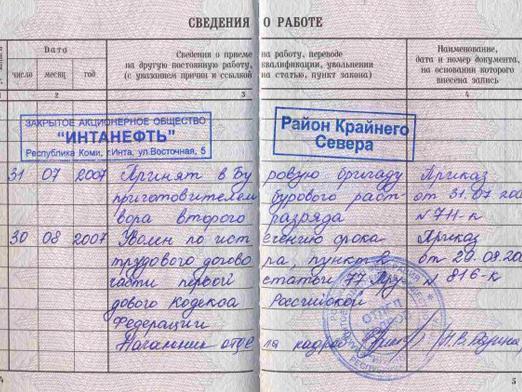 СВЕДЕНИЯ О РАБОТЕ
Дата
число месяц год
Сведения о приеме на работу, переводе
на другую постоянную работу, квалификации, увольнении
(с указанием причин и ссылкой на статью, пункт закона)
Наименование,
дата и номер документа,
на основании которого
внесена запись
2 3 4
ЗАКРЫТОЕ АКЦИОНЕРНОЕ ОБЩЕСТВО
"ИНТАНЕФТЬ"
Республика Коми, г.Инта, ул.Восточная, 5
Район Крайнего
Севера
31 07 2007 Принят в буровую бригаду Приказ
приготовителем бурового раст- от 31.07.200
вора второго разряда №711-к
30 08 2007 Уволен по истечению срока Приказ
трудового договора, пункт 2 от 20.08.20
части первой статьи 77 Тру- № 816-к
дового Кодекса Российской
Федерации
Начальник отдела кадров
5